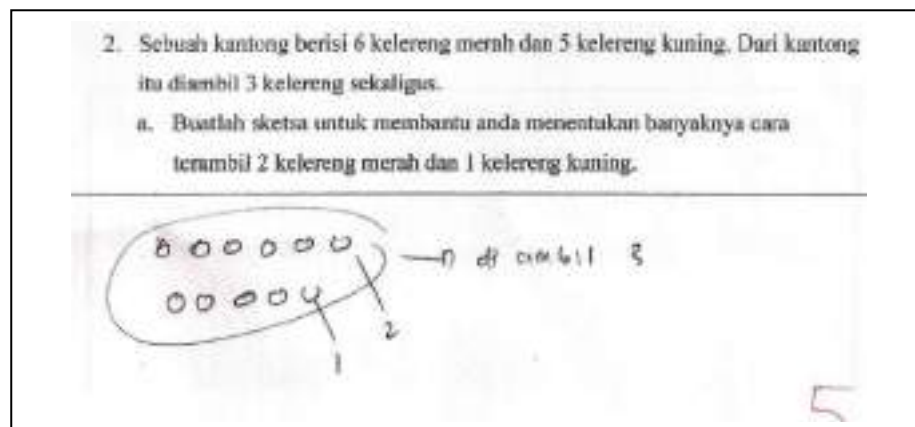 2. Sebuah kantong berisi 6 kelereng merah dan 5 kelereng kuning. Dari kantong
itu diambil 3 kelereng sekaligus.
a. Buatlah sketsa untuk membantu anda menentukan banyaknya cara
terambil 2 kelereng merah dan 1 kelereng kuning.
di ambil 3
2
1
5